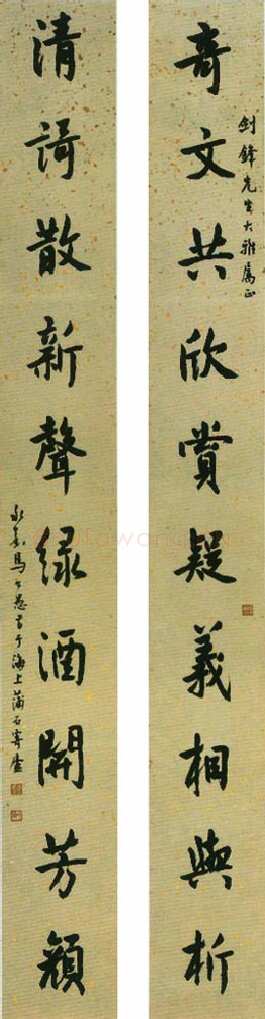 奇文共欣賞疑義相與析
劍鋒先生大雅属正
清謌散新聲绿酒開芳顔
永嘉馬公愚書于海上蒲石寄廬